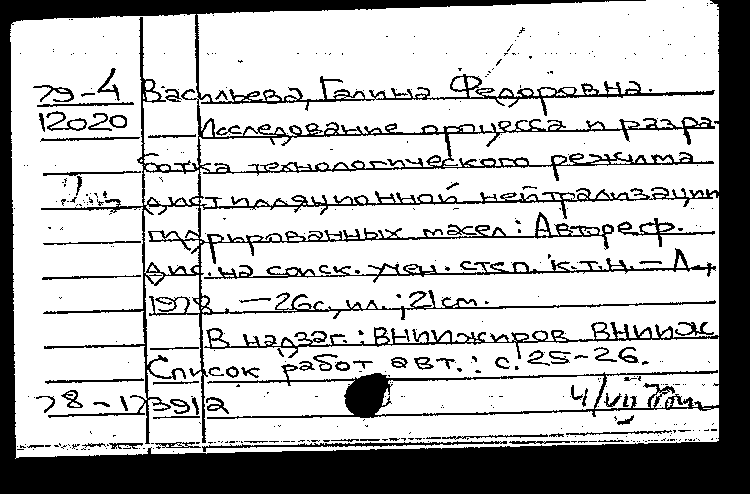 79-4 Васильева, Галина Федоровна.
12020 Исследование процесса и разра-
ботка технологического режима
дистилляционной нейтрализации
гидрированных масел: Автореф.
дис. на соиск. учен. степ. к.т.н. - Л.,
1978. - 26 с., ил.; 21 см.
В надзаг.: ВНИИжиров ВНИИЖ
Список работ авт.: с. 25-26.
78-173912
4/VII